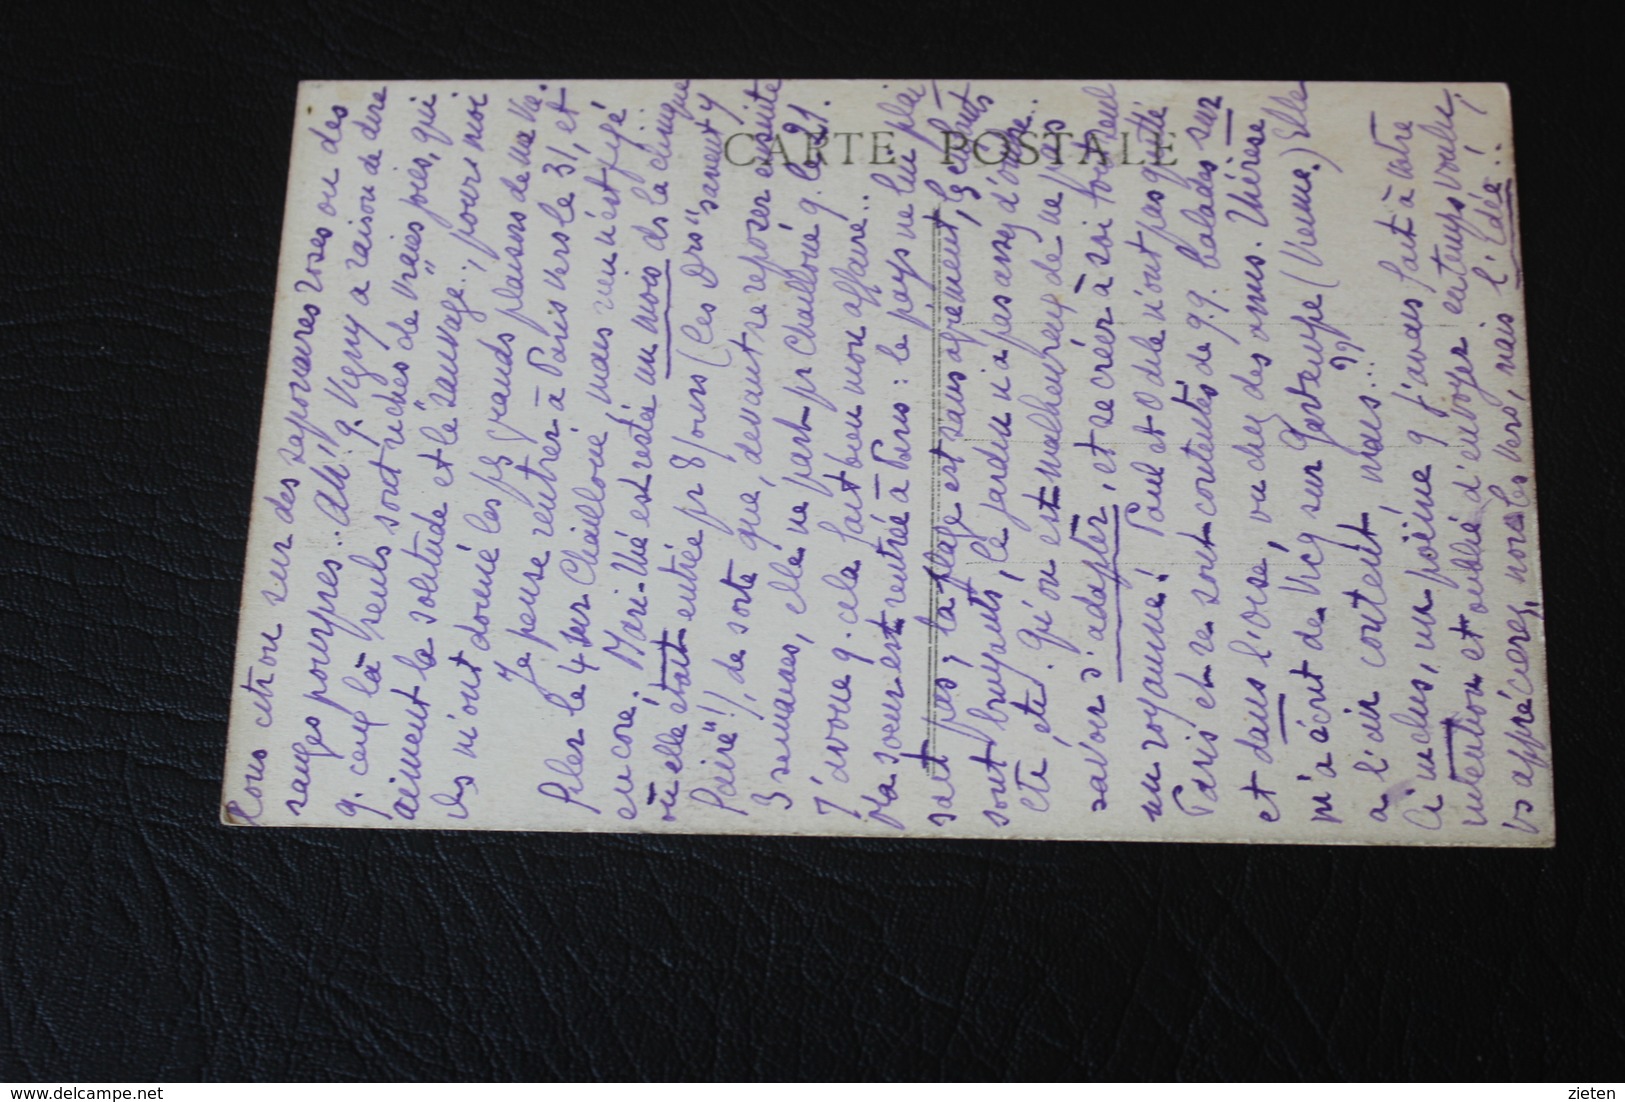 CARTE POSTALE
sur des saponaires roses ou des
rouges pourpres.. Ah! q. Vigny a raison de dire
q. ceux là seuls sont riches de vraies joies, qui
aiment la solitude et le "sauvage", pour moi
ils m'ont donné les plus grands plaisirs de ma vie.
Je pense rentrer à Paris vers le 31, et
filer le 4 sur Chailloué mais rien n'est fixé
encore; Marie-Thé est restée un mois ds la clinique
où elle était entrée pr 8 jours (les Drs "savent y
faire"!), de sorte que, devant se reposer ensuite
3 semaines, elle ne part pr Chailloué q. le 21.
J'avoue q. cela fait bien mon affaire..
Ma soeur est rentrée à Paris: le pays ne lui plai
sait pas, la plage est sans agrément, les enfants
sont bruyants, le jardin n'a pas assez d'ombre..
etc, etc. Qu'on est malheureux de ne pas
savoir s'adapter, et se créer à soi tout seul
un royaume! Paul et Odile n'ont pas quitté
Paris et se sont contentés de q.q. balades sur
et dans l'Oise, ou chez des amis. Thérèse
m'a écrit de Vicq sur Gartempe (Vienne.) Elle
a l'air contente, mais...??
Ci inclus, un poème q j'avais fait à votre
intention et oublié d'envoyer en temps voulu;
vs apprécierez, non les vers, mais l'idée!..